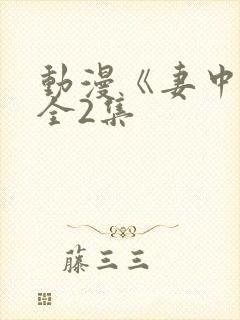 動漫《妻中
全2集
藤三三